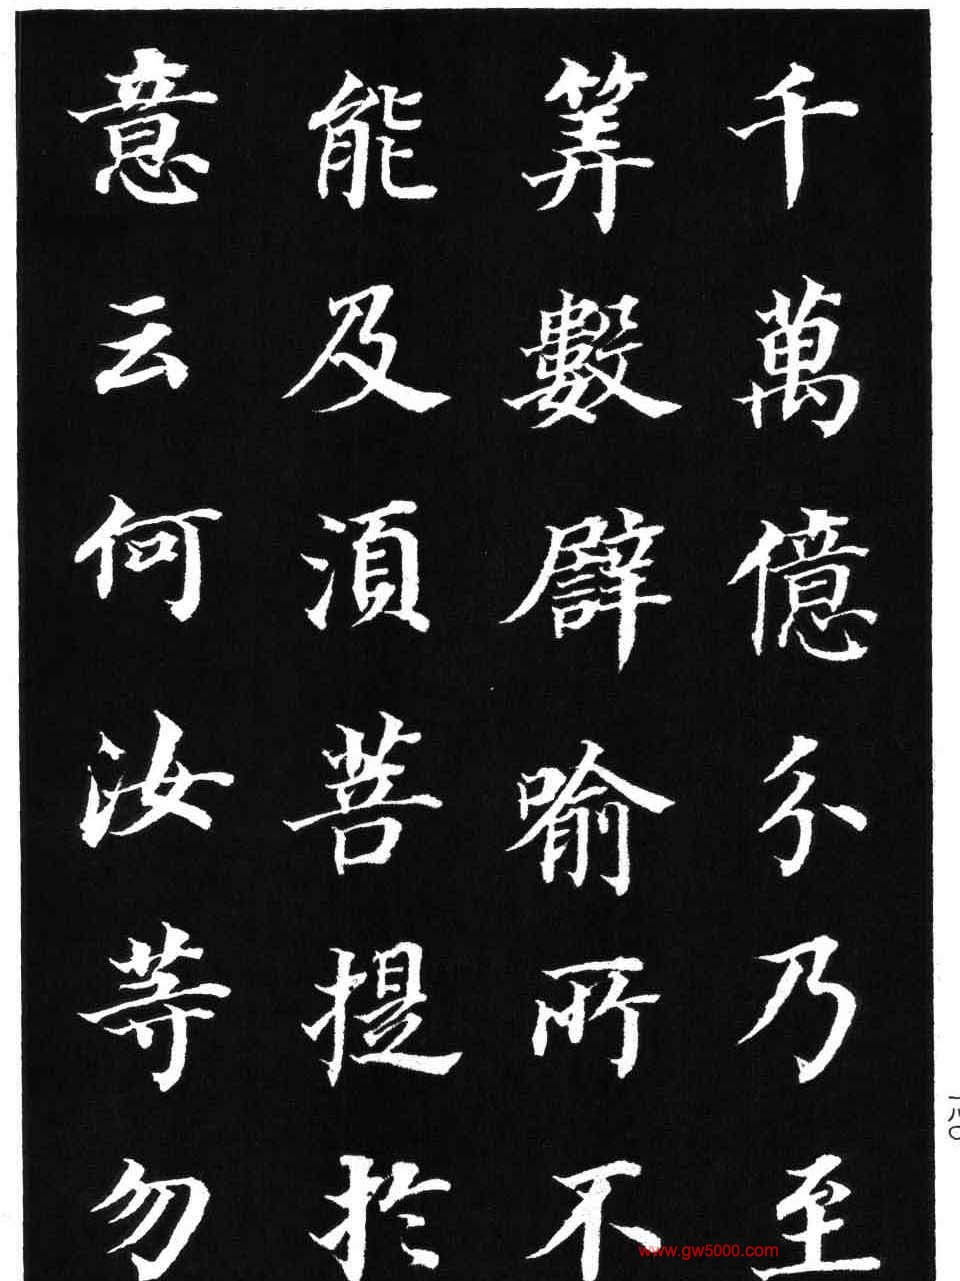 千萬億分乃至
筭數譬喻所不
能及須菩提於
意云何汝等勿
一八〇
www.gw5000.com